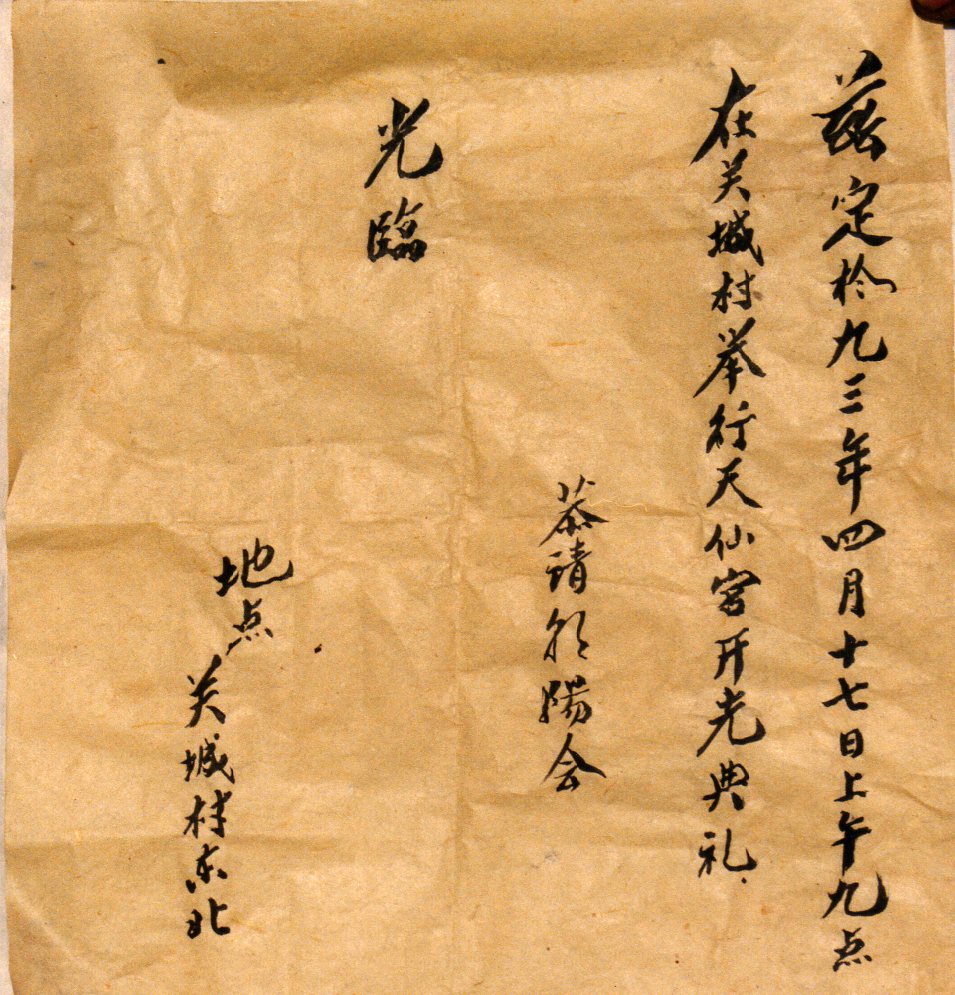 兹定於九三年四月十七日上午九点
在关城村举行天仙宫开光典礼
恭请朝阳会
光臨
地点
关城村东北